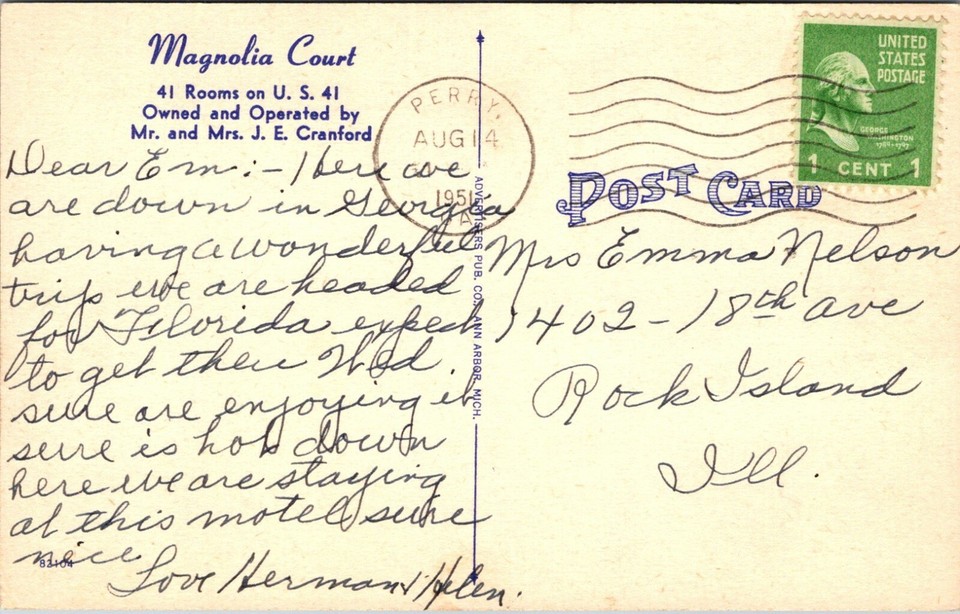 Magnolia Court
41 Rooms on U. S. 41
Owned and Operated by
Mr. and Mrs. J. E. Cranford
Dear Em:- Here we
are down in Georgia
having a wonderful
trip we are headed
for Florida expect
to get there Wed.
sure are enjoying it
sure is hot down
here we are staying
at this motel sure
nice
Love Herman & Helen.
82104
ADVERTISERS PUB. CO., ANN ARBOR, MICH.
PERRY,
AUG 14
1951
GA
UNITED
STATES
POSTAGE
GEORGE
WASHINGTON
1789-1797
1 CENT 1
POST CARD
Mrs Emma Nelson
1402-18th ave
Rock Island
Ill.